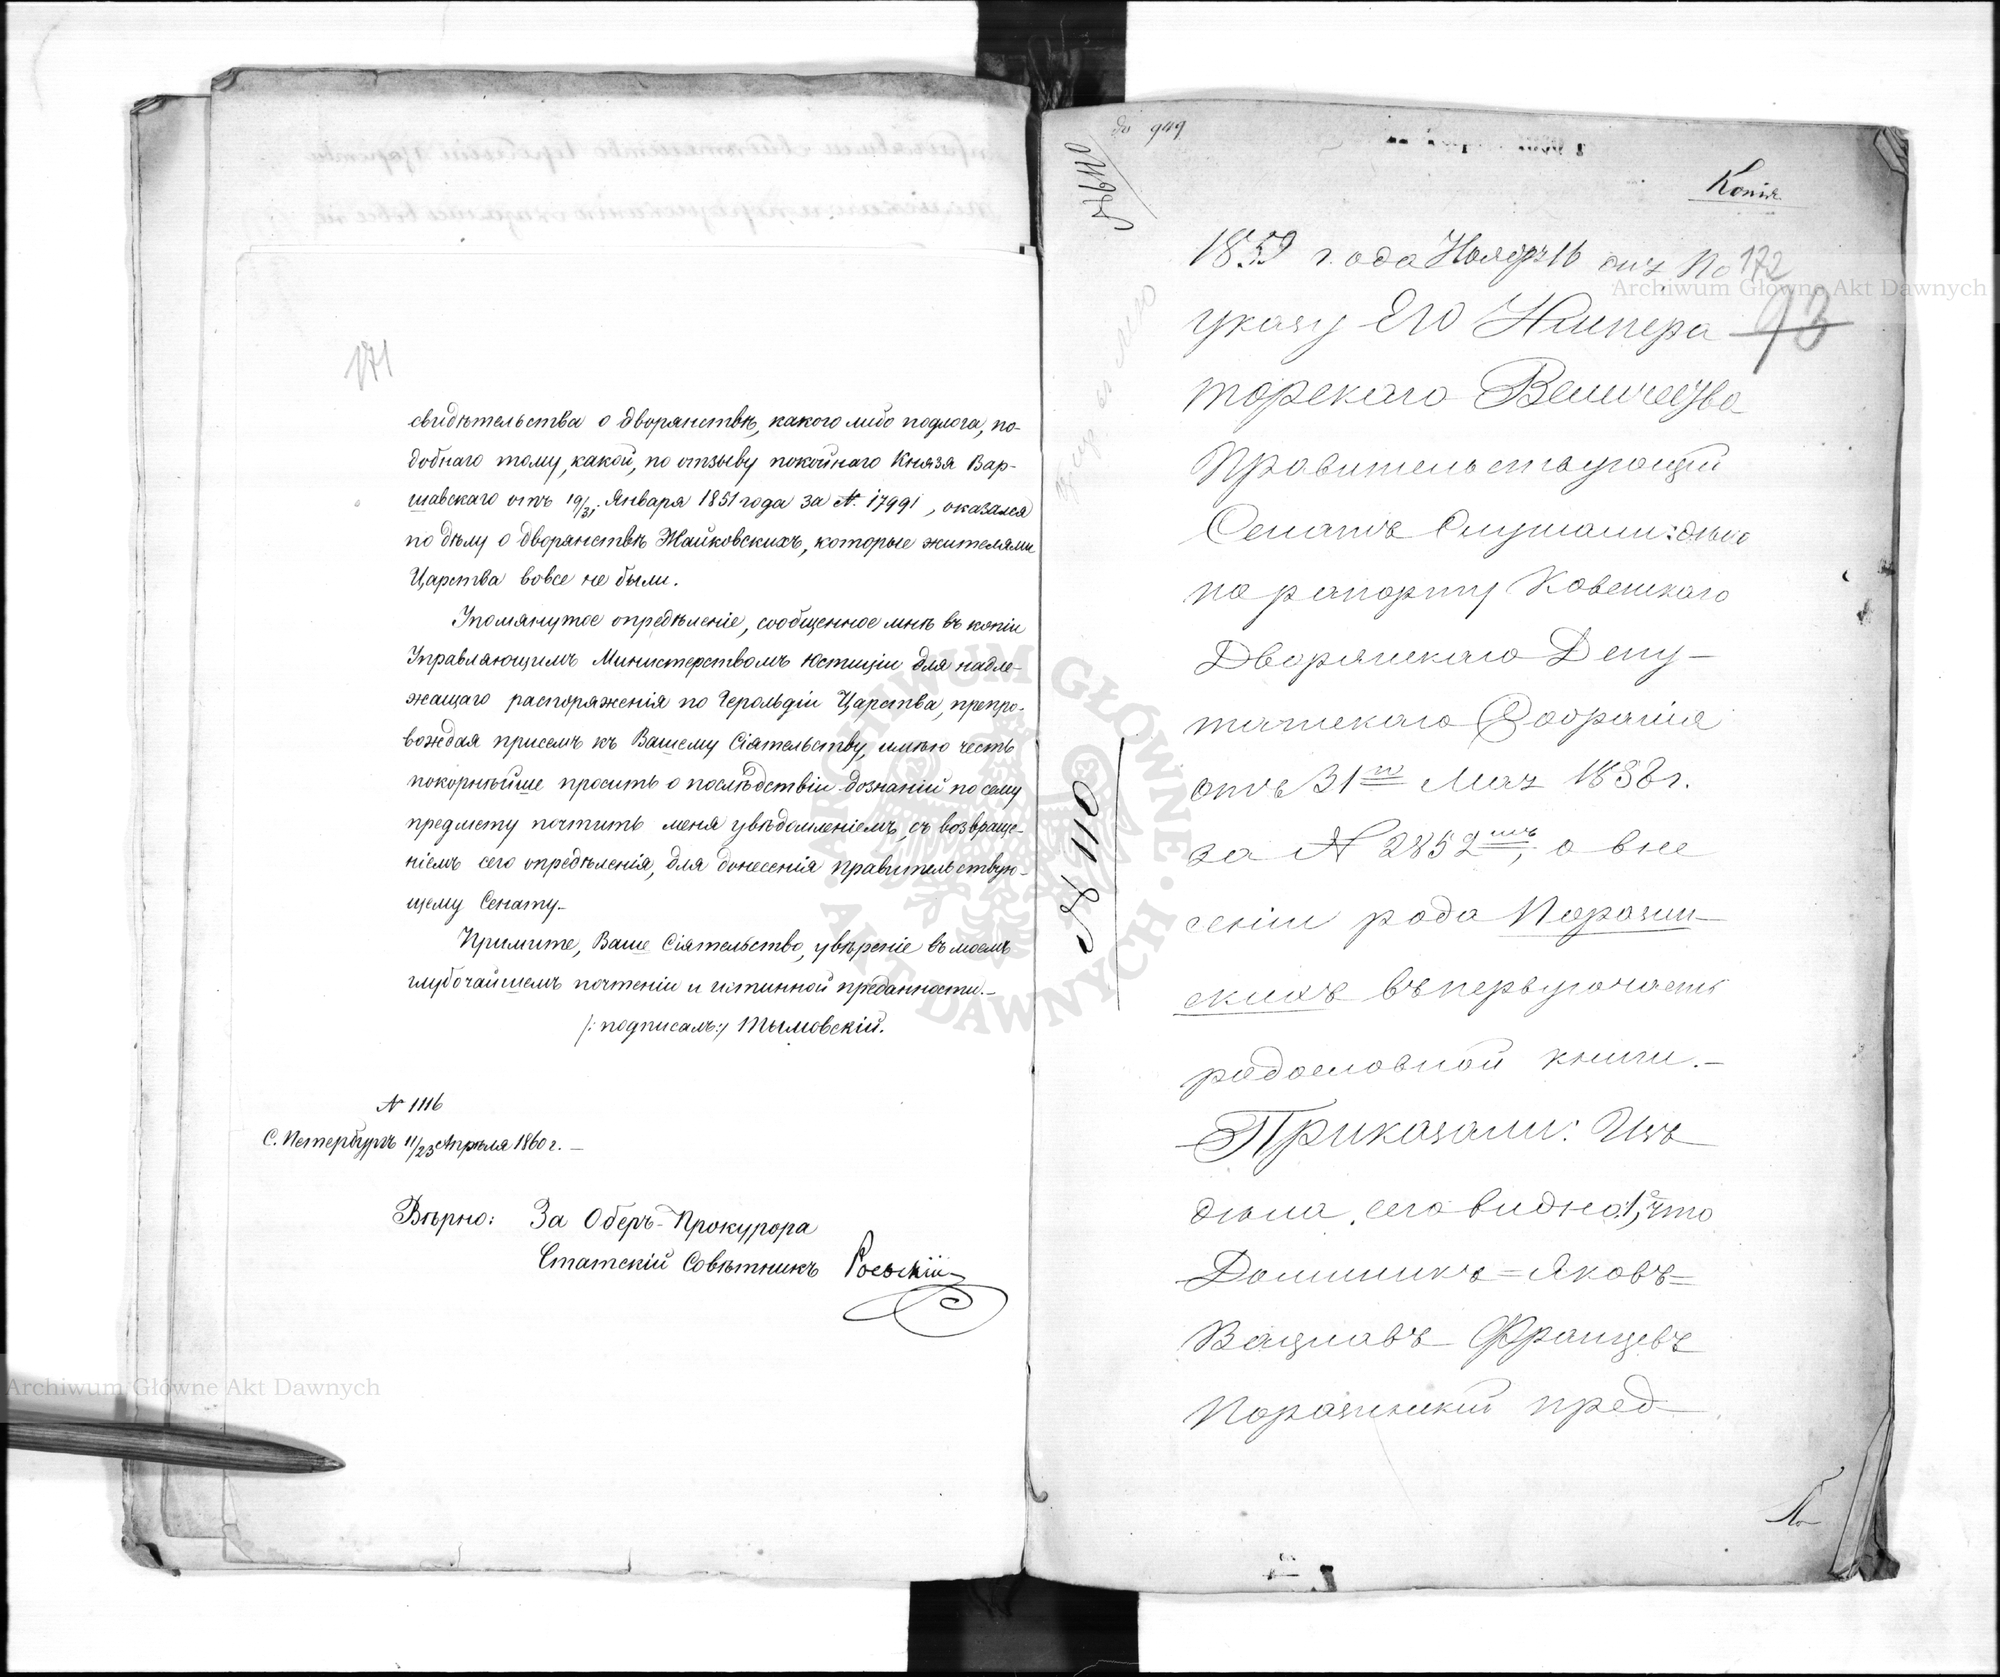 171
свидѣтельства о дворянствѣ, какого либо подлога, по-
добнаго тому, какой, по отзыву покойнаго Князя Вар-
шавскаго отъ 19/31 Января 1851 года за № 17991, оказался
по дѣлу о дворянствѣ Жайковскихъ, которые жителями
Царства вовсе не были.
Упомянутое опредѣленіе, сообщенное мнѣ въ копіи
Управляющимъ Министерствомъ Юстиціи для надле-
жащаго распоряженія по Герольдіи Царства, препро-
вождая присемъ къ Вашему Сіятельству, имѣю честь
покорнѣйше просить о послѣдствіи дознаній по сему
предмету почтить меня увѣдомленіемъ, съ возвраще-
ніемъ сего опредѣленія, для донесенія Правительствую-
щему Сенату.
Примите, Ваше Сіятельство, увѣреніе въ моемъ
глубочайшемъ почтеніи и истинной преданности.
/:подписалъ:/ Тымовскій.
№ 1116
С. Петербургъ 11/23 Апрѣля 1860 г.
Вѣрно: За Оберъ-Прокурора
Статскій Совѣтникъ
до 949
№ 110
Копія
1859 года Ноября 16 дня По 172
указу Его Импера 93
торскаго Величества
Правительствующій
Сенатъ Слушали: дѣло
по рапорту Ковенскаго
Дворянскаго Депу-
татскаго Собранія
отъ 31го Мая 1858 г.
за № 2852мъ, о вне
сеніи рода Поразин-
скихъ въ первую часть
родословной книги.-
Приказали: Изъ
дѣла сего видно: 1, что
Доминикъ=Яковъ=
Вацлавъ Францевъ
Поразинскій пред-
№ 110
Archiwum Główne Akt Dawnych
Archiwum Główne Akt Dawnych
ARCHIWUM GŁÓWNE · AKT DAWNYCH ·